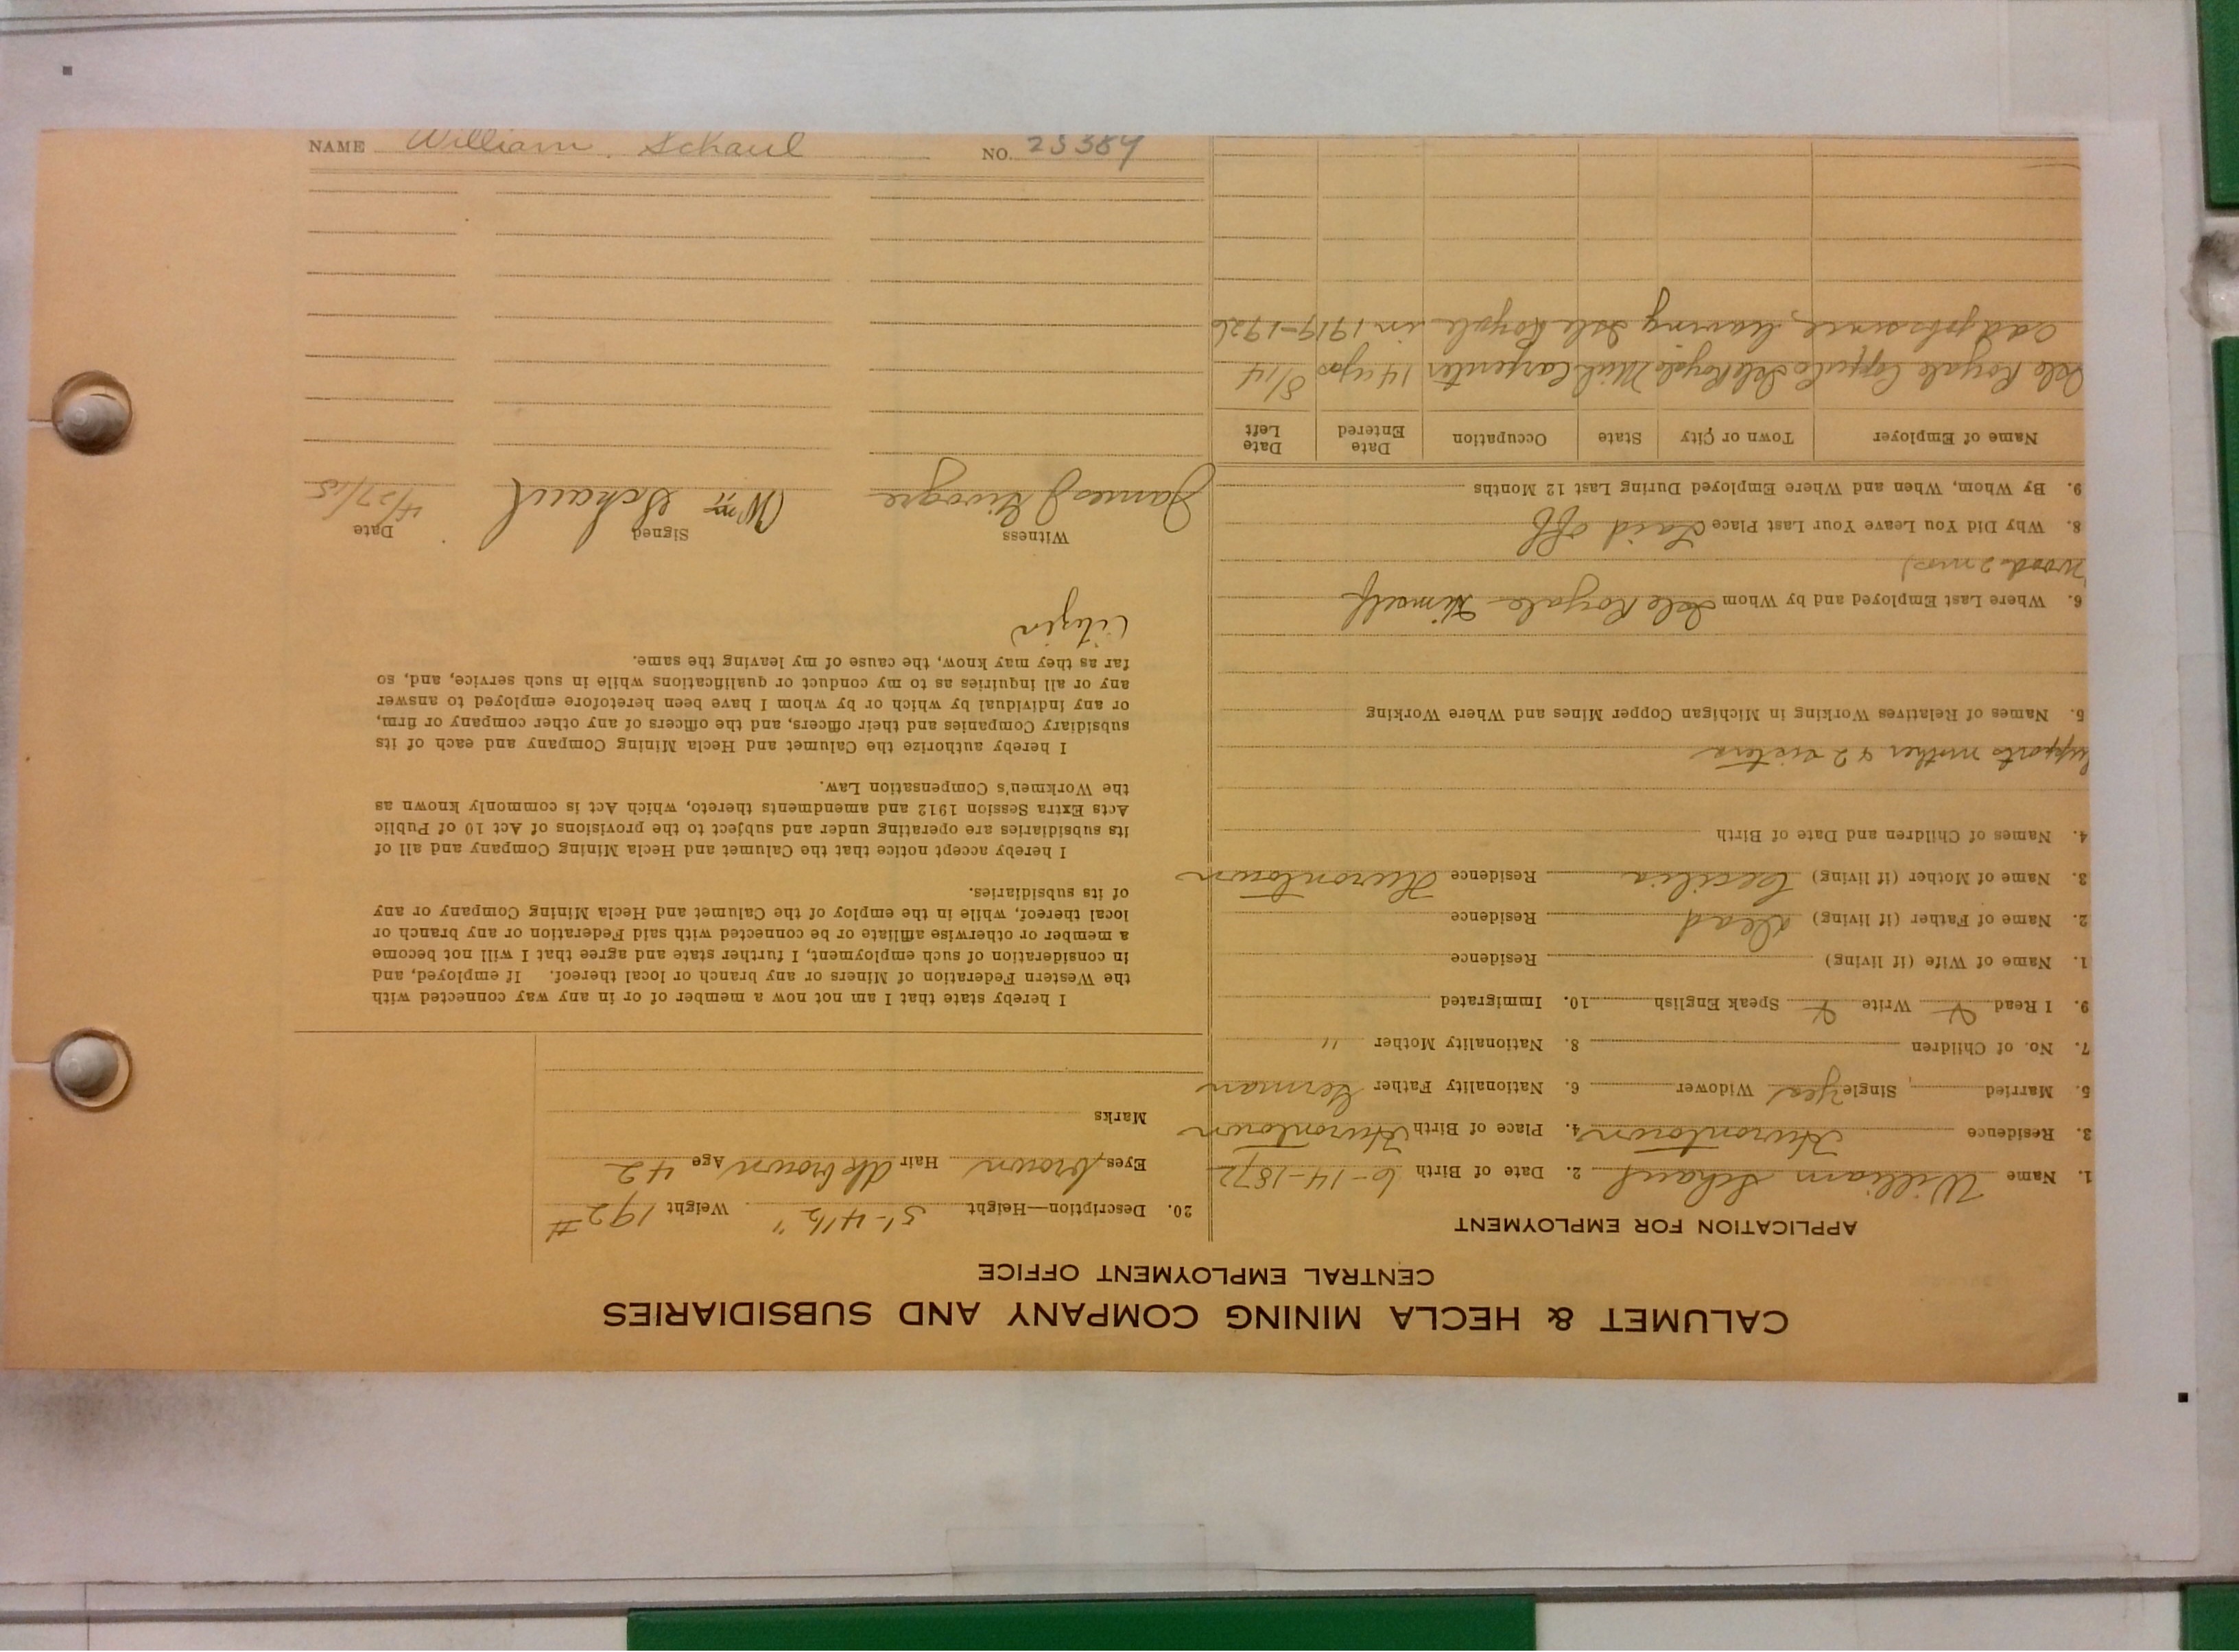 CALUMET & HECLA MINING COMPANY AND SUBSIDIARIES
CENTRAL EMPLOYMENT OFFICE
APPLICATION FOR EMPLOYMENT
1. Name William Schaul 2. Date of Birth 6-14-1872
3. Residence Hurontown 4. Place of Birth Hurontown
5. Married Single yes Widower 6. Nationality Father German
7. No. of Children 8. Nationality Mother "
9. I Read Write Speak English 10. Immigrated
1. Name of Wife (if living) Residence
2. Name of Father (if living) dead Residence
3. Name of Mother (if living) Cecilia Residence Hurontown
4. Names of Children and Date of Birth
Supports mother & 2 sisters
5. Names of Relatives Working in Michigan Copper Mines and Where Working
6. Where Last Employed and by Whom Isle Royale Himself
8. Why Did You Leave Your Last Place Laid off
9. By Whom, When and Where Employed During Last 12 Months
Name of Employer Town or City State Occupation Date Entered Date Left
Isle Royale Copper Co Isle Royale Mich Carpenter 14 yrs 8/14
odd jobs since leaving Isle Royale in
20. Description—Height 5'-4½" Weight 192#
Eyes brown Hair dk brown Age 42
Marks
I hereby state that I am not now a member of or in any way connected with
the Western Federation of Miners or any branch or local thereof. If employed, and
in consideration of such employment, I further state and agree that I will not become
a member or otherwise affiliate or be connected with said Federation or any branch or
local thereof, while in the employ of the Calumet and Hecla Mining Company or any
of its subsidiaries.
I hereby accept notice that the Calumet and Hecla Mining Company and all of
its subsidiaries are operating under and subject to the provisions of Act 10 of Public
Acts Extra Session 1912 and amendments thereto, which Act is commonly known as
the Workmen's Compensation Law.
I hereby authorize the Calumet and Hecla Mining Company and each of its
subsidiary Companies and their officers, and the officers of any other company or firm,
or any individual by which or by whom I have been heretofore employed to answer
any or all inquiries as to my conduct or qualifications while in such service, and, so
far as they may know, the cause of my leaving the same.
Citizen
Witness Signed Date
James J Wm Schaul 4/27/15
NAME William Schaul NO. 23384